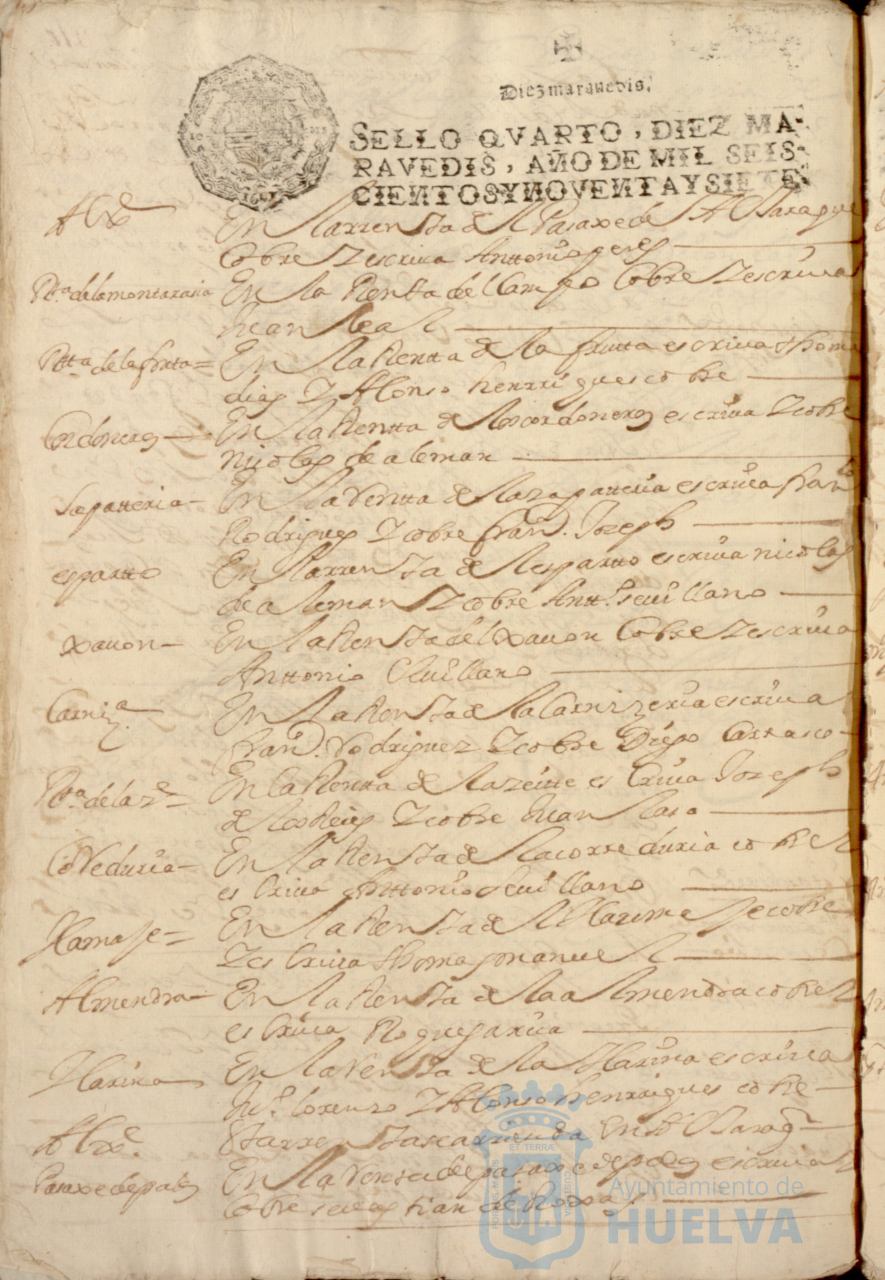 Diez maravedis.
SELLO QVARTO, DIEZ MA-
RAVEDIS, AÑO DE MIL SEIS-
CIENTOS Y NOVENTA Y SIETE
En la rrenta del Pasaxe de
Cobre y escriva Anttonio peres
Rta. de la montarasia En la Renta del Campo Cobre y escriva
Juan Leal
Rtta. de la frta= En la Rentta de la frutta escriva thomas
dias y Alonso henrriques cobre
Cordoneros En la Rentta de los cordoneros escriva y cobre
Nicolas de aleman
Sapatteria En la Rentta de la zapatteria escriva franco
Rodrigues y cobre Fran. Joseph
espartto En la rrenta del espartto escriva nicolas
de aleman y cobre Antto. sevillano
xavon En la Renta del xavon Cobre y escriva
Anttonio Sevillano
Carniza. En la Renta de la Carnizeria escriva
Fran. Rodriguez y cobre Diego Carrasco
En la Rentta del azeitte escriva Joseph
de los Reies y cobre Juan
Correduria En la Renta de la correduria cobre y
escriva Anttonio Sevillano
En la Renta del cobre
y escriva thomas manuel
Almendra En la Renta de la almendra cobre y
escriva Roque garcia
Harina En la Renta de la Harina escriva
Ju. lorenzo y Alonso henrriques cobre
Pasaxe de palos En la Renta de pasaxe de palos escriva y
Cobre sevastian de Roxas
ET TERRÆ
Ayuntamiento de
HUELVA